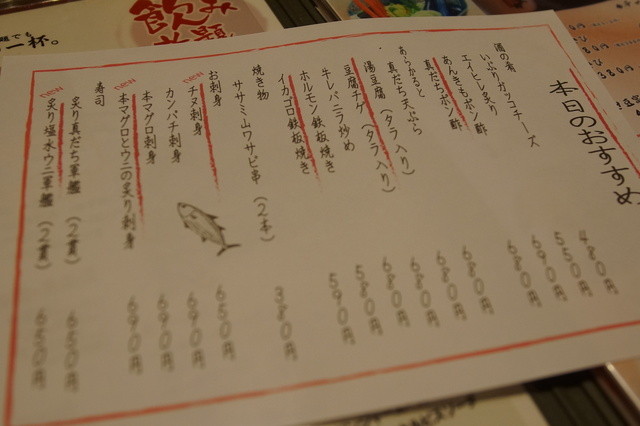 本日のおすすめ
酒の肴
いぶりガッコチーズ 480円
エイヒレ炙り 550円
あんきもポン酢 690円
真だちポン酢 680円
あらかると
真だち天ぷら 680円
湯豆腐(タラ入り) 680円
豆腐チゲ(タラ入り) 680円
牛レバニラ炒め 680円
ホルモン鉄板焼き 580円
イカゴロ鉄板焼き 590円
焼き物
ササミ山ワサビ串(2本) 380円
お刺身
NEW チヌ刺身 650円
カンパチ刺身 690円
本マグロ刺身 690円
NEW 本マグロとウニの炙り刺身 690円
寿司
炙り真だち軍艦(2貫) 650円
NEW 炙り塩水ウニ軍艦(2貫) 650円
一杯。
飲み放題